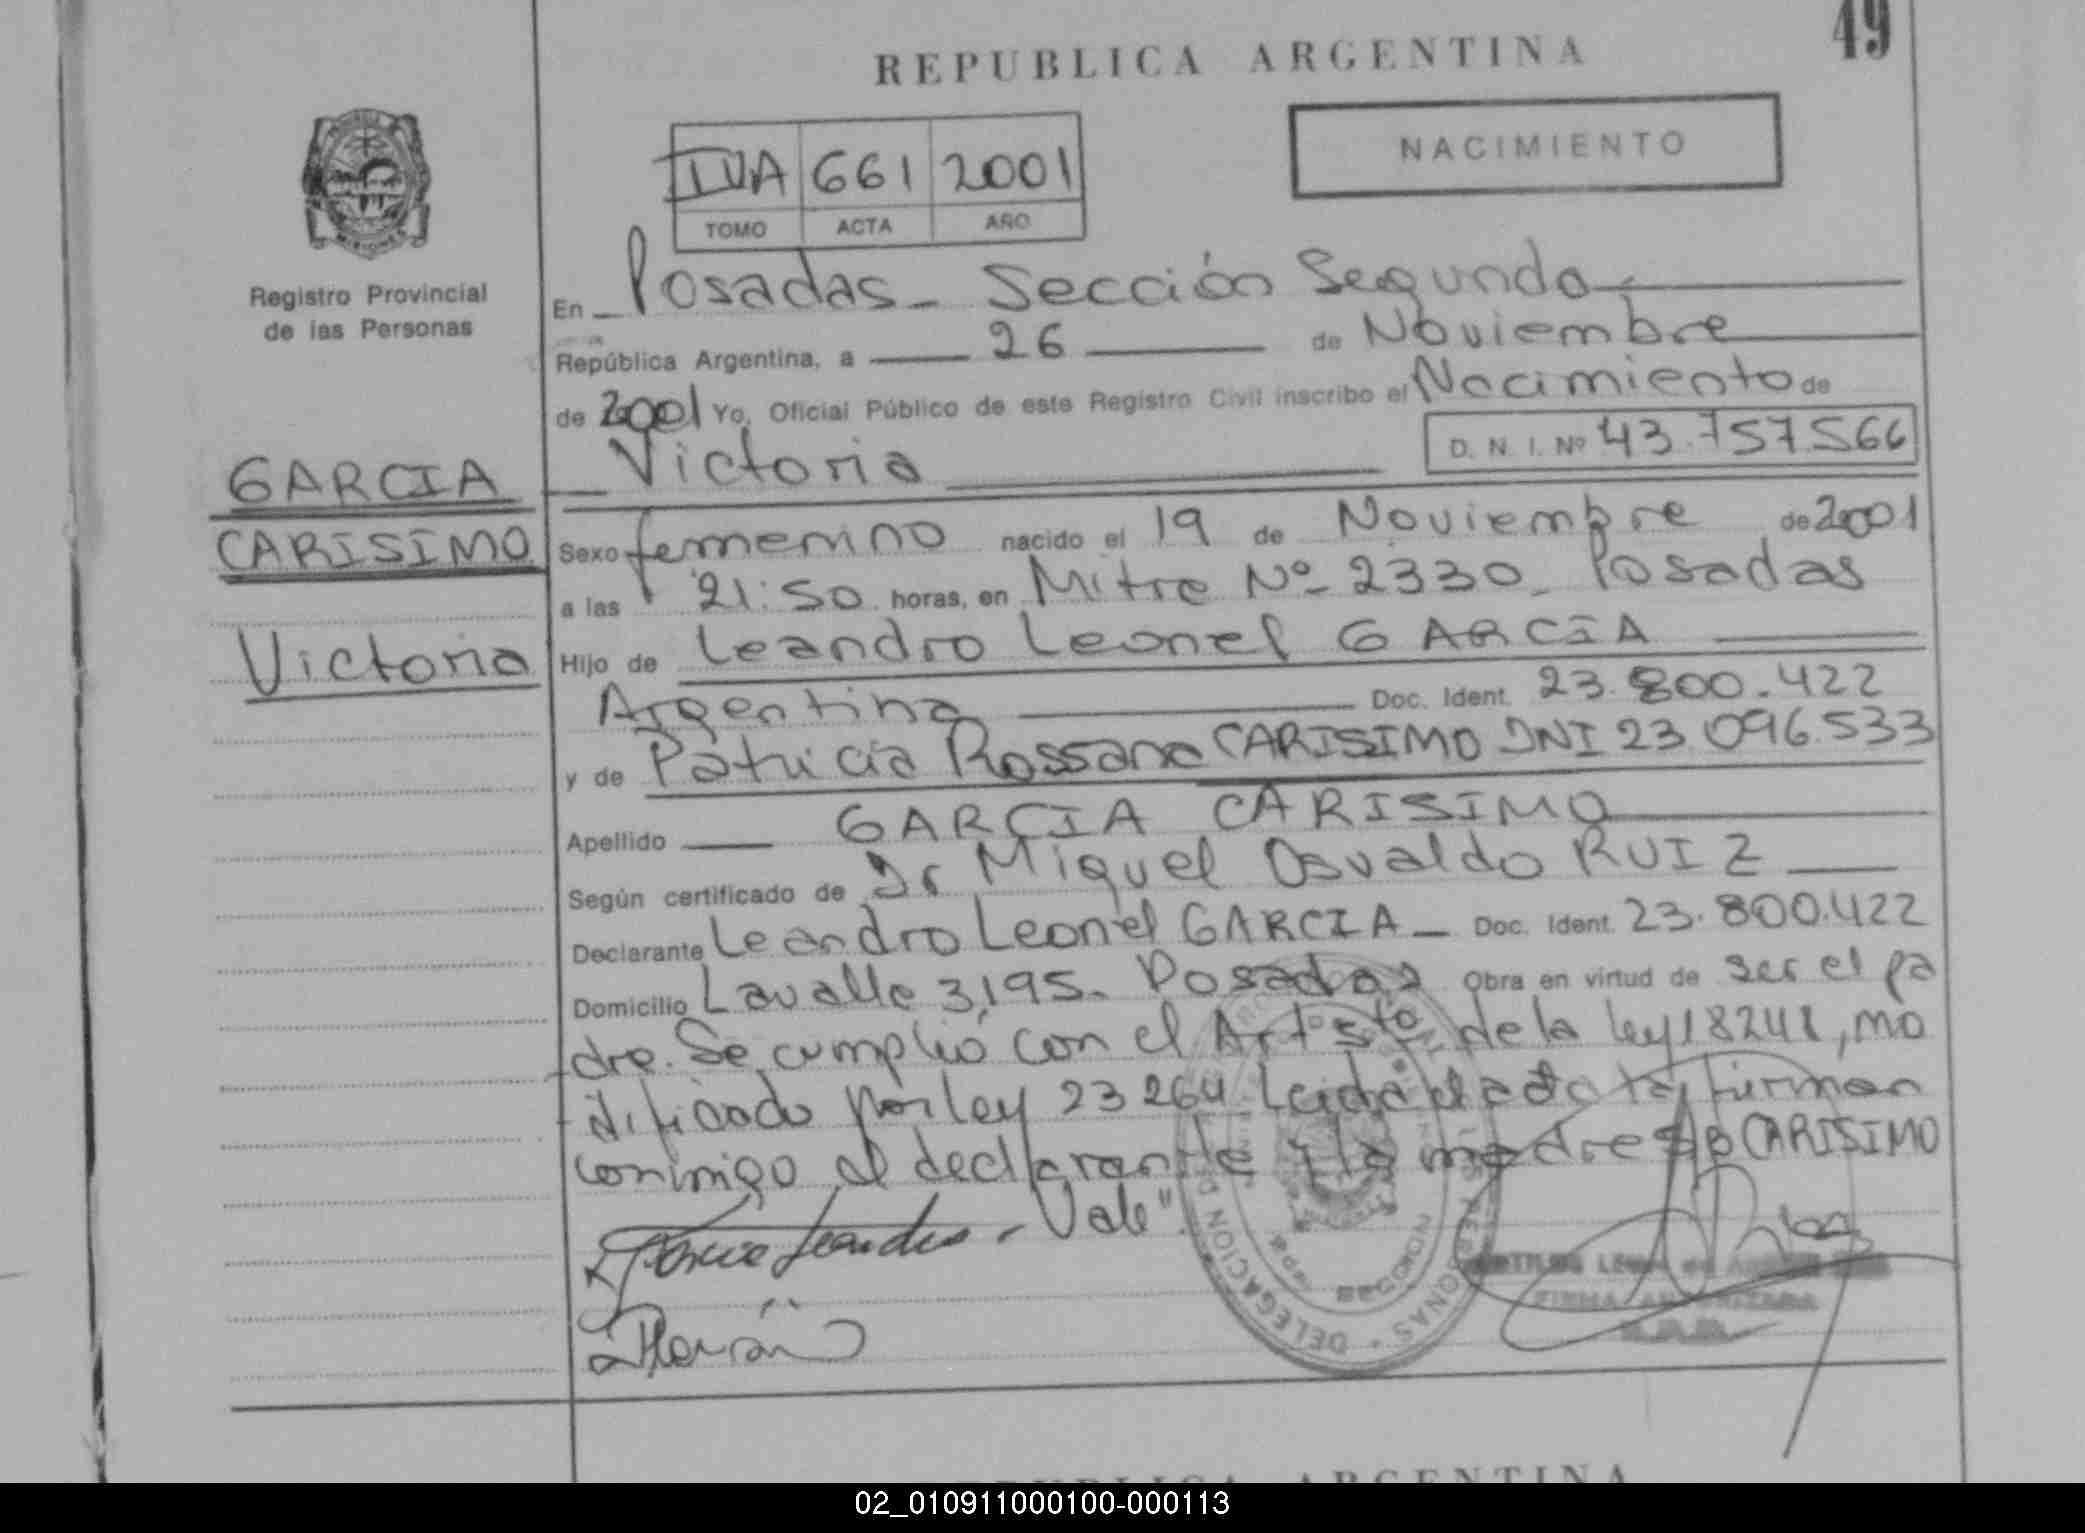 49
REPUBLICA ARGENTINA
NACIMIENTO
IVA 661 2001
TOMO ACTA AÑO
MISIONES
Registro Provincial
de las Personas
GARCIA
CARISIMO
Victoria
En Posadas - Sección Segunda
República Argentina, a 26 de Noviembre
de 2001 Yo, Oficial Público de este Registro Civil inscribo el Nacimiento de
Victoria D. N. I. Nº 43.757.566
Sexo femenino nacido el 19 de Noviembre de 2001
a las 21:50 horas, en Mitre Nº 2330 - Posadas
Hijo de Leandro Leonel GARCIA
Argentina Doc. Ident. 23.800.422
y de Patricia Rossana CARISIMO DNI 23.096.533
Apellido GARCIA CARISIMO
Según certificado de Dr Miguel Osvaldo RUIZ
Declarante Leandro Leonel GARCIA - Doc. Ident. 23.800.422
Domicilio Lavalle 3195 - Posadas Obra en virtud de ser el pa
dre. Se cumplió con el Art 5to de la ley 18248, mo
dificado por ley 23264 Leida el acta firman
conmigo el declarante y la madre CARISIMO
Vale"
Garcia Leandro
DELEGACION
SEGUNDA
FIRMA AUTORIZADA
REPUBLICA ARGENTINA
02_010911000100-000113